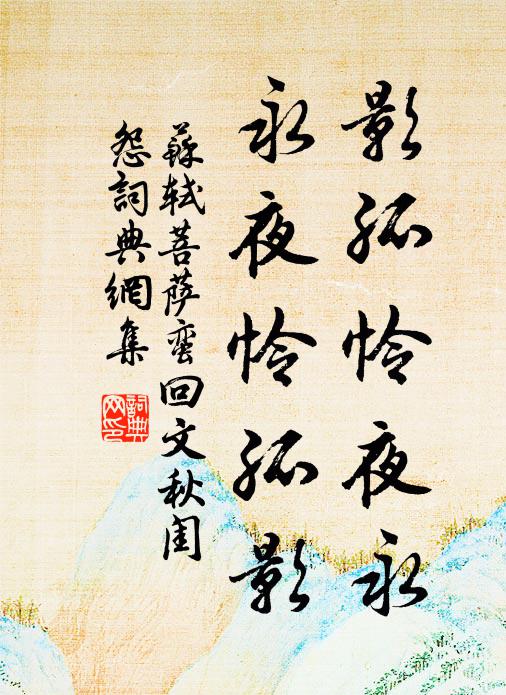 影孤怜夜永
永夜怜孤影
蘇軾菩萨蛮回文秋闺
怨詞典網集
詞典
网印